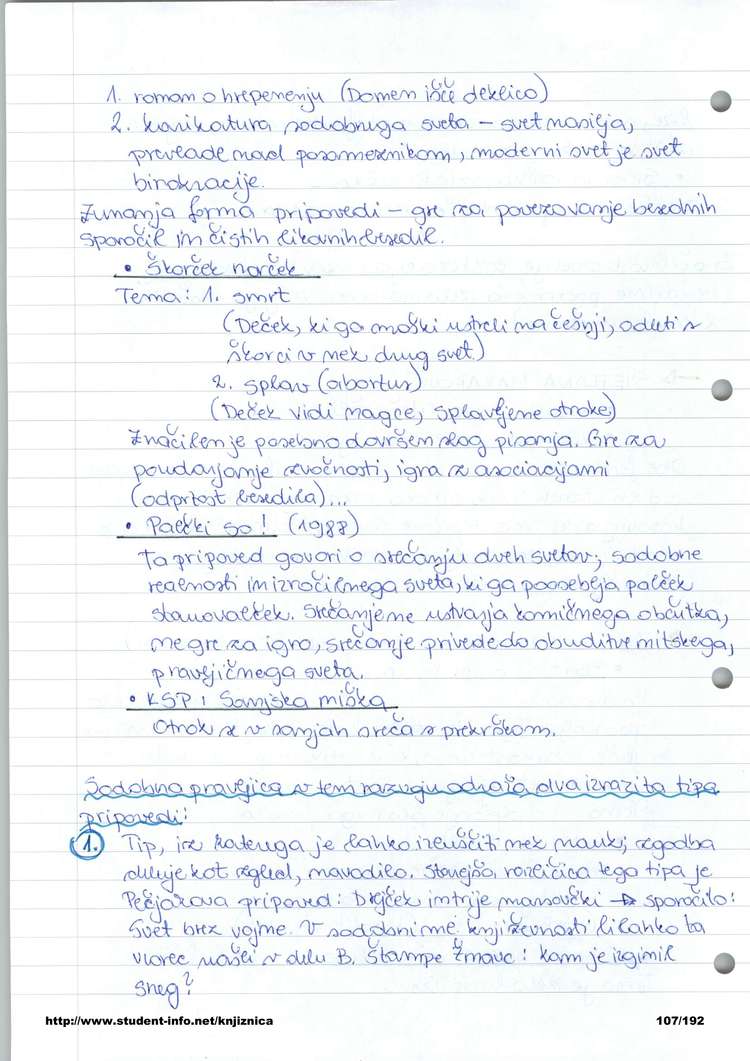 1. roman o hrepenenju (Domen išče deklico)
2. karikatura sodobnega sveta – svet nasilja,
prevlade nad posameznikom, moderni svet je svet
birokracije.
Zunanja forma pripovedi – gre za povezovanje besednih
sporočil in čistih likovnih besedil.
• Škorček norček
Tema: 1. smrt
(Deček, ki ga moški ustreli na češnji, odleti s
škorci v nek drug svet)
2. splav (abortus)
(Deček vidi magce, splavljene otroke)
Značilen je posebno dovršen slog pisanja. Gre za
poudarjanje zvočnosti, igra z asociacijami
(odprtost besedila)...
• Palčki so! (1988)
Ta pripoved govori o srečanju dveh svetov; sodobne
realnosti in izročilnega sveta, ki ga pooseblja palček
stanovalček. Srečanje ne ustvarja komičnega občutka,
ne gre za igro, srečanje privede do obuditve mitskega,
pravljičnega sveta.
• KSP: Sanjska miška
Otrok se v sanjah sreča s prekrškom.
Sodobna pravljica v tem razvoju odraža dva izrazita tipa
pripovedi:
1. Tip, iz katerega je lahko izluščiti nek nauk; zgodba
deluje kot zgled, navodilo. Starejša različica tega tipa je
Pečjakova pripoved: Drejček in trije marsovčki → sporočilo:
Svet brez vojne. V sodobni me. književnosti bi lahko ta
vzorec našli v delu B. Štampe Žmavc: kam je izginil
sneg?
http://www.student-info.net/knjiznica
107/192